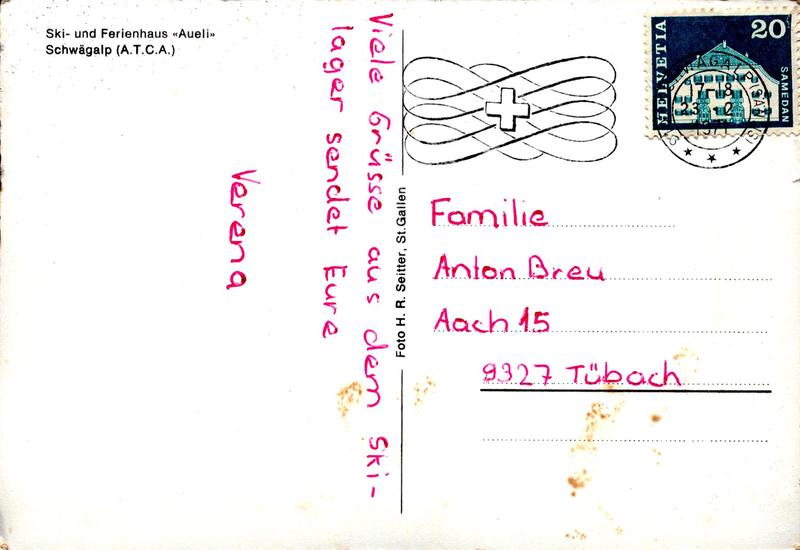 Ski- und Ferienhaus «Aueli»
Schwägalp (A.T.C.A.)
Viele Grüsse aus dem Ski-
lager sendet Eure
Verena
Foto H. R. Seitter, St. Gallen
HELVETIA
20
SAMEDAN
17-8
23-2
1971
Familie
Anton Breu
Aach 15
9327 Tübach